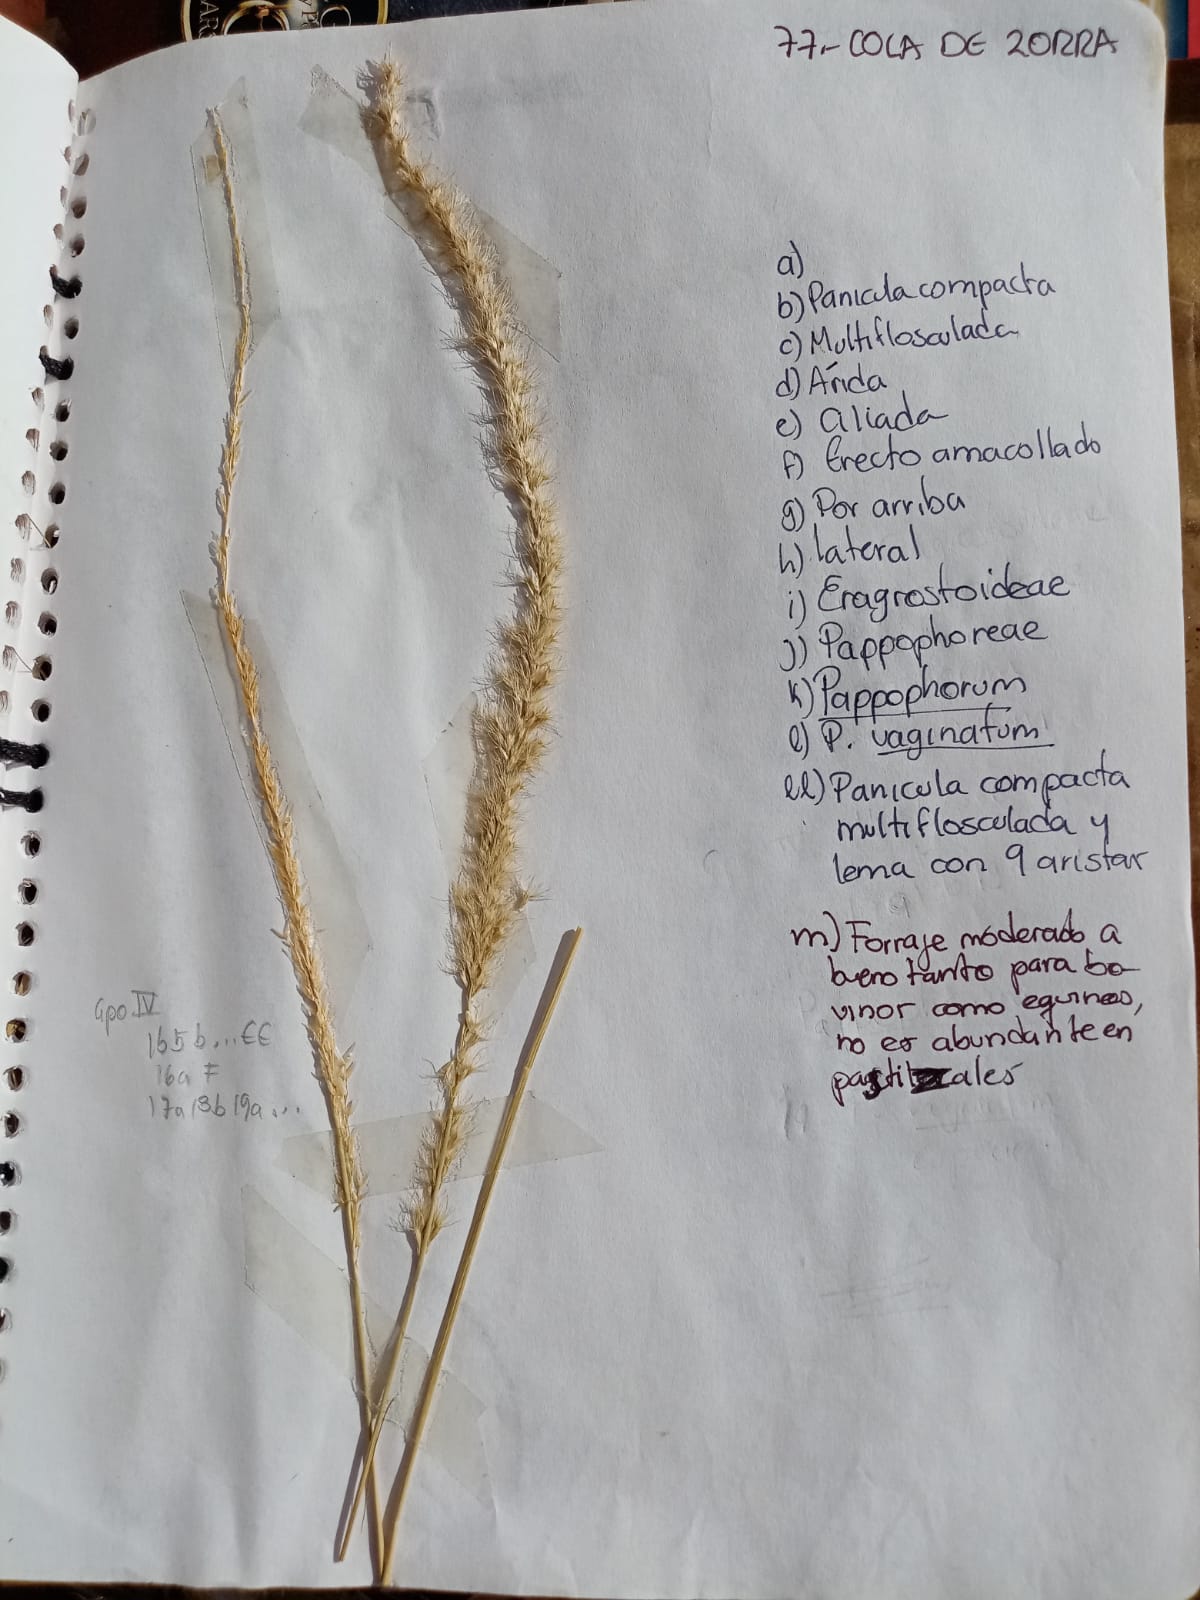 77.- COLA DE ZORRA
a)
b) Panicula compacta
c) Multiflosculada
d) Árida
e) Aliada
f) Erecto amacollado
g) Por arriba
h) lateral
i) Eragrostoideae
j) Pappophoreae
k) Pappophorum
l) P. vaginatum
ll) Panicula compacta
multiflosculada y
lema con 9 aristas
m) Forraje moderado a
bueno tanto para bo-
vinos como equinos,
no es abundante en
pastizales
Gpo IV
16a F